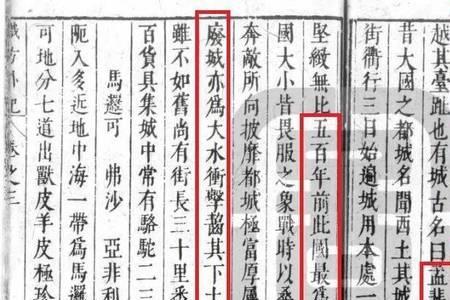 越其臺趾也有城古名曰孟斐
昔大國之都城名聞西土其城
街衢行三日始遍城用本處一
堅緻無比五百年前此國最為
國大小皆畏服之象戰時以桑
奔敵所向披靡都城極富厚屬
廢城亦為大水衝擊齧其下土
雖不如舊尚有街長三十里悉
百貨具集城中常有駱駝二三
馬邏可 弗沙 亞非利
阨入多近地中海一帶為馬邏
可地分七道出獸皮羊皮極珍
職方外紀 卷之三